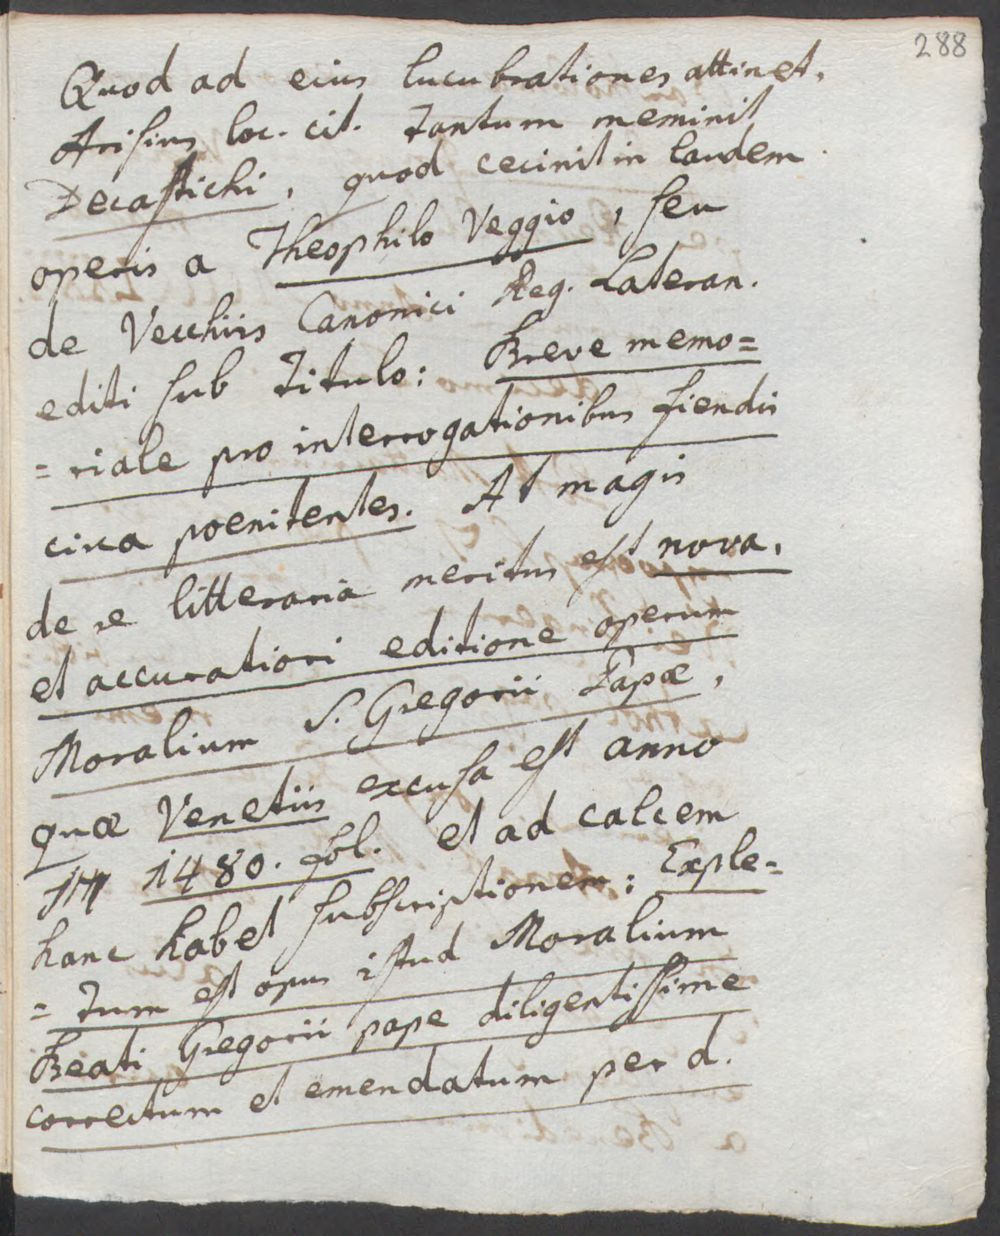 288
Quod ad eius lucubrationes attinet,
Arisius loc. cit. tantum meminit
Decastichi, quod cecinit in laudem
operis a Theophilo Veggio, seu
de Vecchiis Canonici Reg. Lateran.
editi sub titulo: Breve memo=
=riale pro interrogationibus fiendis
circa poenitentes. At magis
de re litteraria meritus est nova,
et accuratiori editione operum
Moralium S. Gregorii Papæ,
quæ Venetiis excusa est anno
1480. fol. et ad calcem
hanc habet subscriptionem: Exple=
=tum est opus istud Moralium
Beati Gregorii pape diligentissime
correctum et emendatum per d.